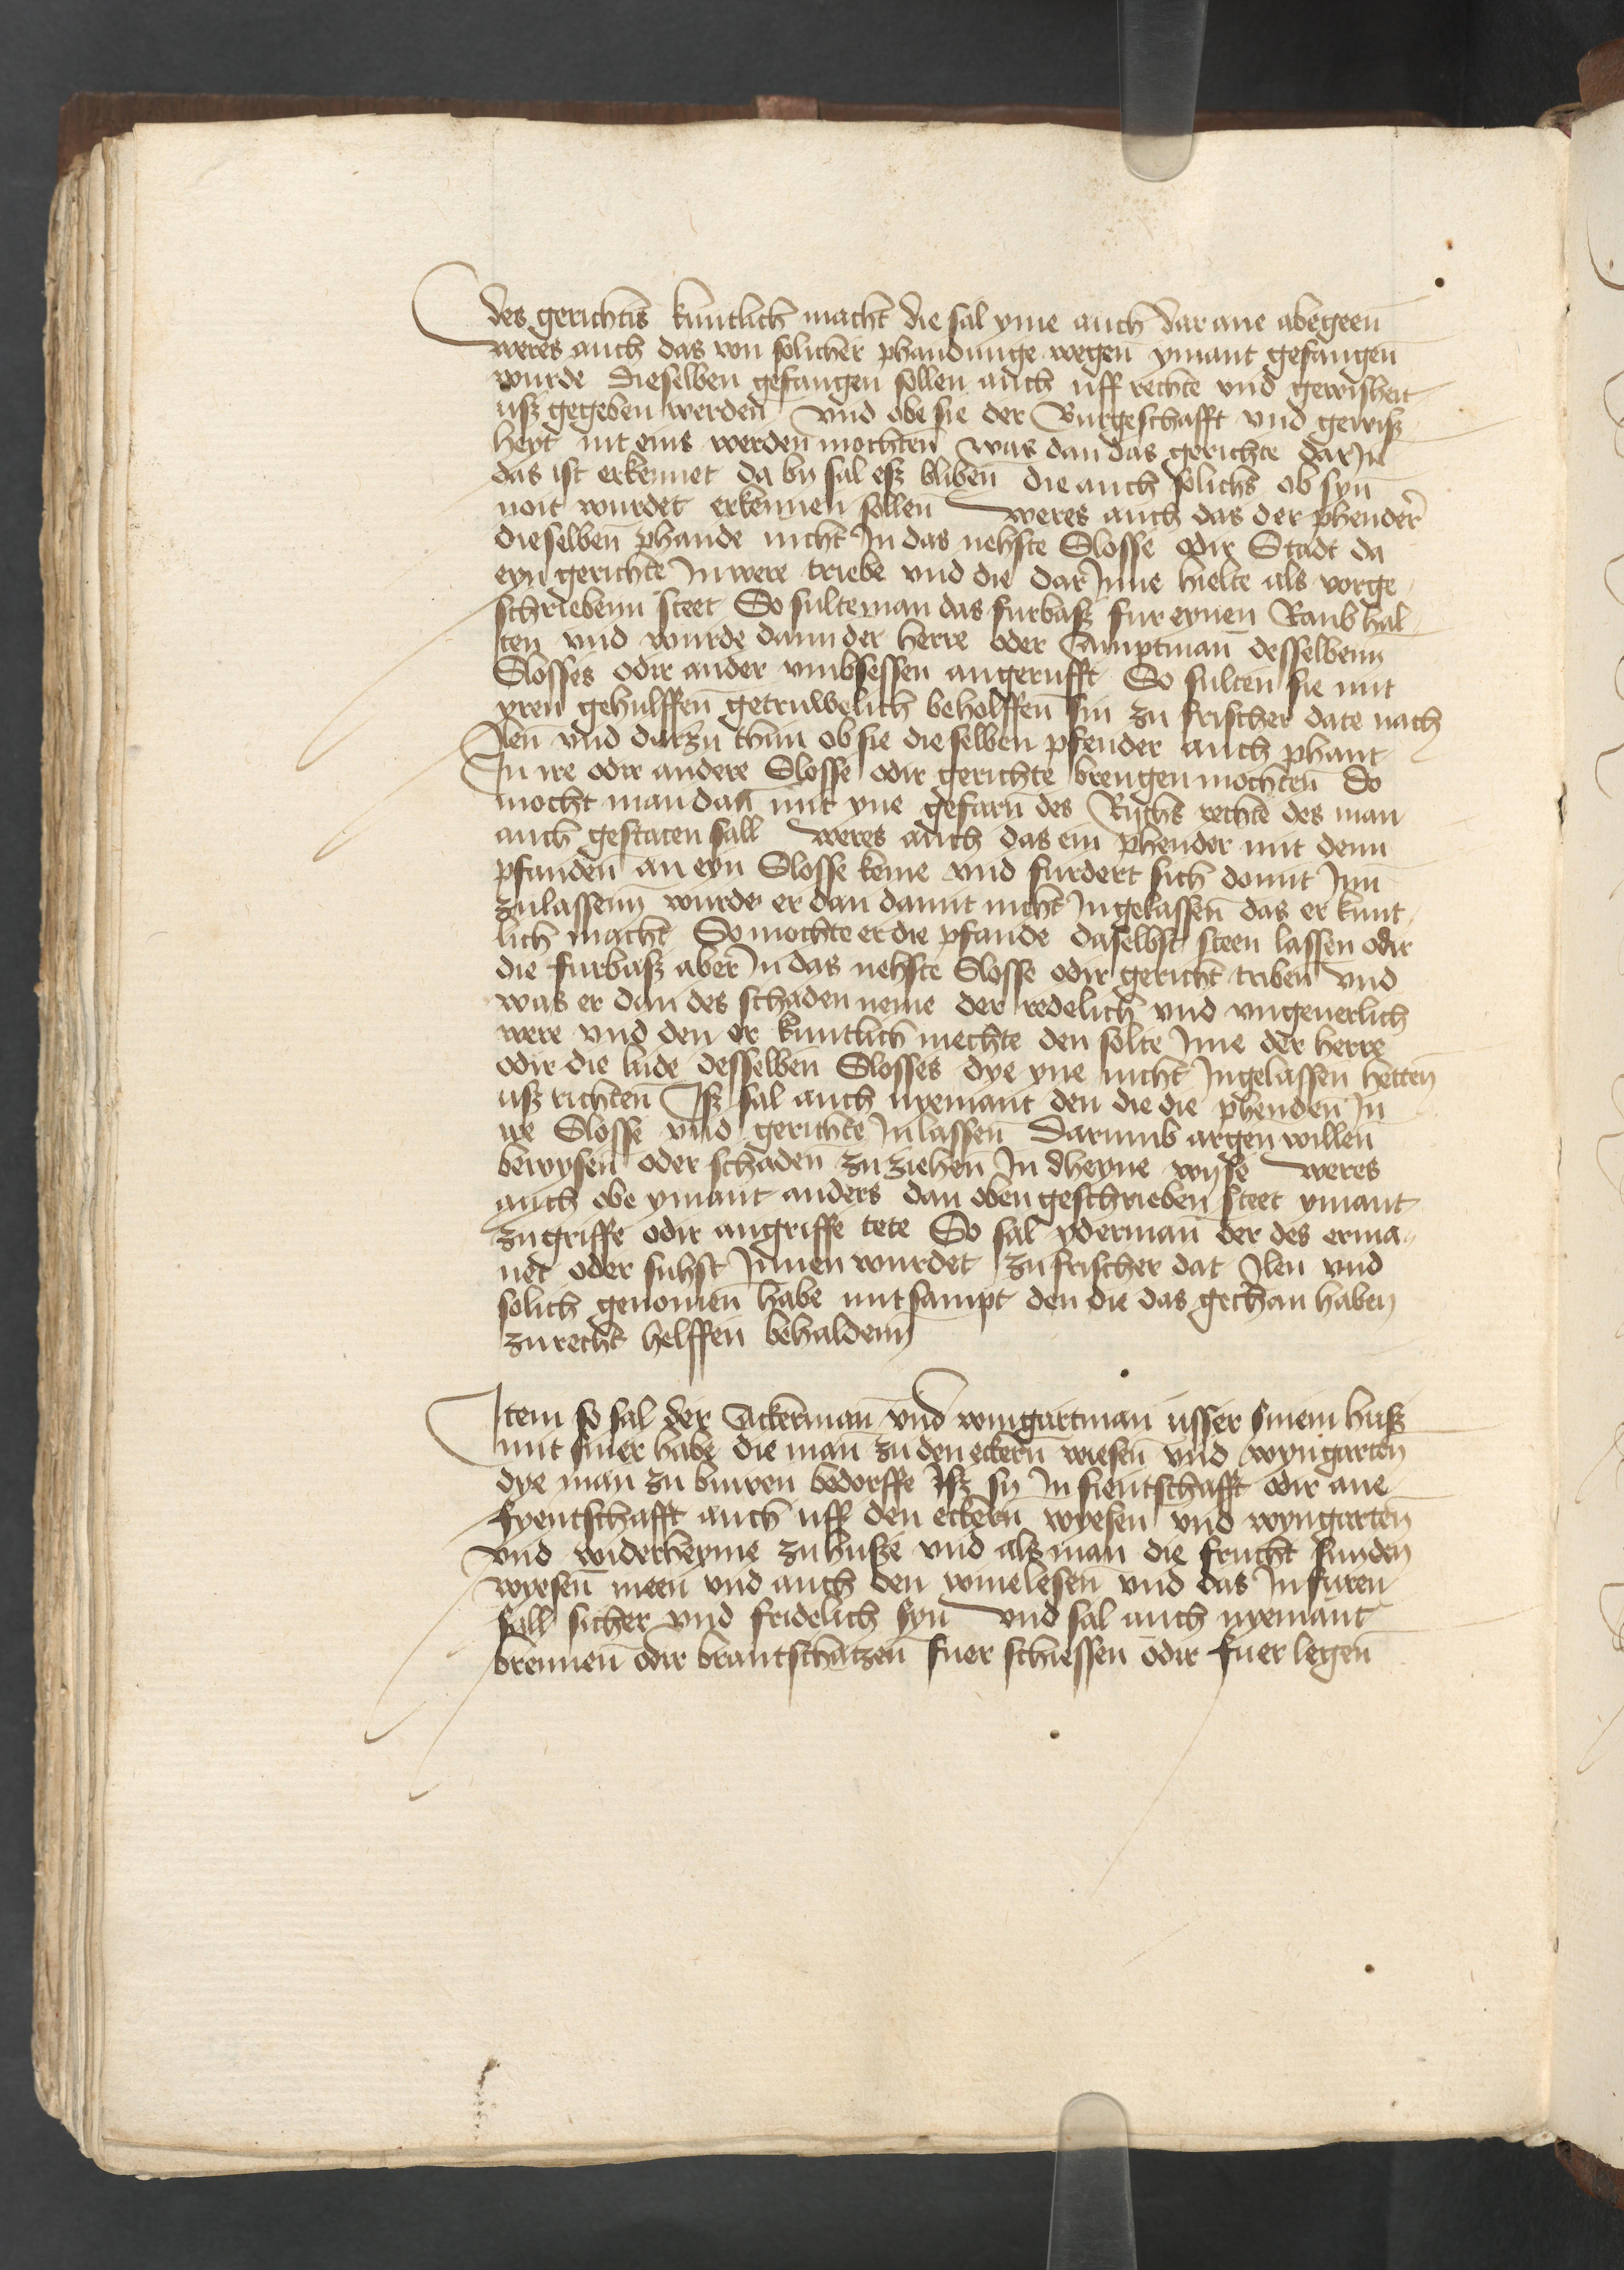 des gerichtis kuntlich macht die sal yme auch dar ane abegeen
weres auch das von solicher phandunge wegen ymant gefangen
wurde Dieselben gefangen sollen auch uff rechte vnd gewisheit
usz gegeben werden vnd obe sie der Burgeschafft vnd gewisz
heyt nit eins werden mochten was dan das gerichte dar Jn
das ist erkennet da by sal esz bliben die auch solichs ob syn
noit wurdet erkennen sollen weres auch das der phender
dieselben phande nicht Jn das nehste Slosse odir Stadt da
eyn gerichte Jnwere triebe vnd die dar Jnne hielte als vorge
schriebenn steet So sulte man das furbasz fur eynen Raub hal
ten vnd wurde dann der herre oder Amptman desselbenn
Slosses odir ander vmbsessen angerufft So sulten sie mit
yren gehulffen getruwelich beholffen sin zu frischer date nach
Jlen vnd darzu thun ob sie dieselben pfender auch phant
Jn ire odir andere Slosse odir gerichte brengen mochten So
mocht man dan mit yne gefarn des Richs rechte des man
auch gestaten sall weres auch das ein phender mit denn
pfanden an eyn Slosse keme vnd furdert sich domit Jnn
zulassenn wurde er dan damit nicht Jngelassen das er kunt
lich macht So mochte er die pfande daselbst steen lassen odir
die furbasz aber Jn das nehste Slosse odir gericht triben vnd
was er dan des schaden neme der redelich vnd vngeuerlich
were vnd den er kuntlich mechte den solte Jme der herre
odir die lude desselben Slosses dye yne nicht Jngelassen hetten
usz richten Jsz sal auch nyemant den die die phenden Jn
ire Slosse vnd gerichte Jnlassen Darumb argen willen
bewysen oder schaden zu ziehen Jn dheyne wyse weres
auch obe ymant anders dan oben geschrieben steet ymant
zugriffe odir angriffe tete So sal yderman der des erma
net oder suhst Jnnen wurdet zu frischer dat Jlen vnd
solich genomen habe mitsampt den die das gethan haben
zu recht helffen behaldenn
Jtem so sal der Ackerman vnd wingartman usser sinem husz
mit siner habe die man zu den eckern wiesen vnd wyngarten
dye man zu buwen bedorffe Jsz sy Jn fientschafft odir ane
fyentschafft auch uff den eckern wyesen vnd wyngarten
vnd widerheyme zu husze vnd als man die frucht snyden
wyesen meen vnd auch den wine lesen vnd das Jnfuren
sall sicher vnd fridelich syn vnd sal auch nyemant
brennen odir brantschatzen fuer schiessen odir fuer legen